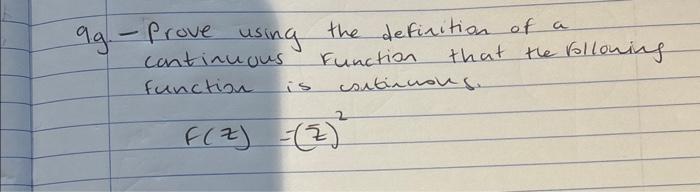 9g. - Prove using the definition of a
continuous Function that the following
function is continuous.
F(z) = (z̄)²